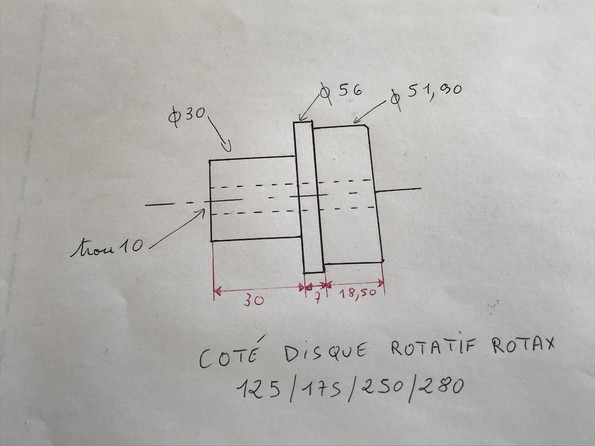 ϕ 56
ϕ 51,90
ϕ30
trou 10
30
7
18,50
COTÉ DISQUE ROTATIF ROTAX
125/175/250/280